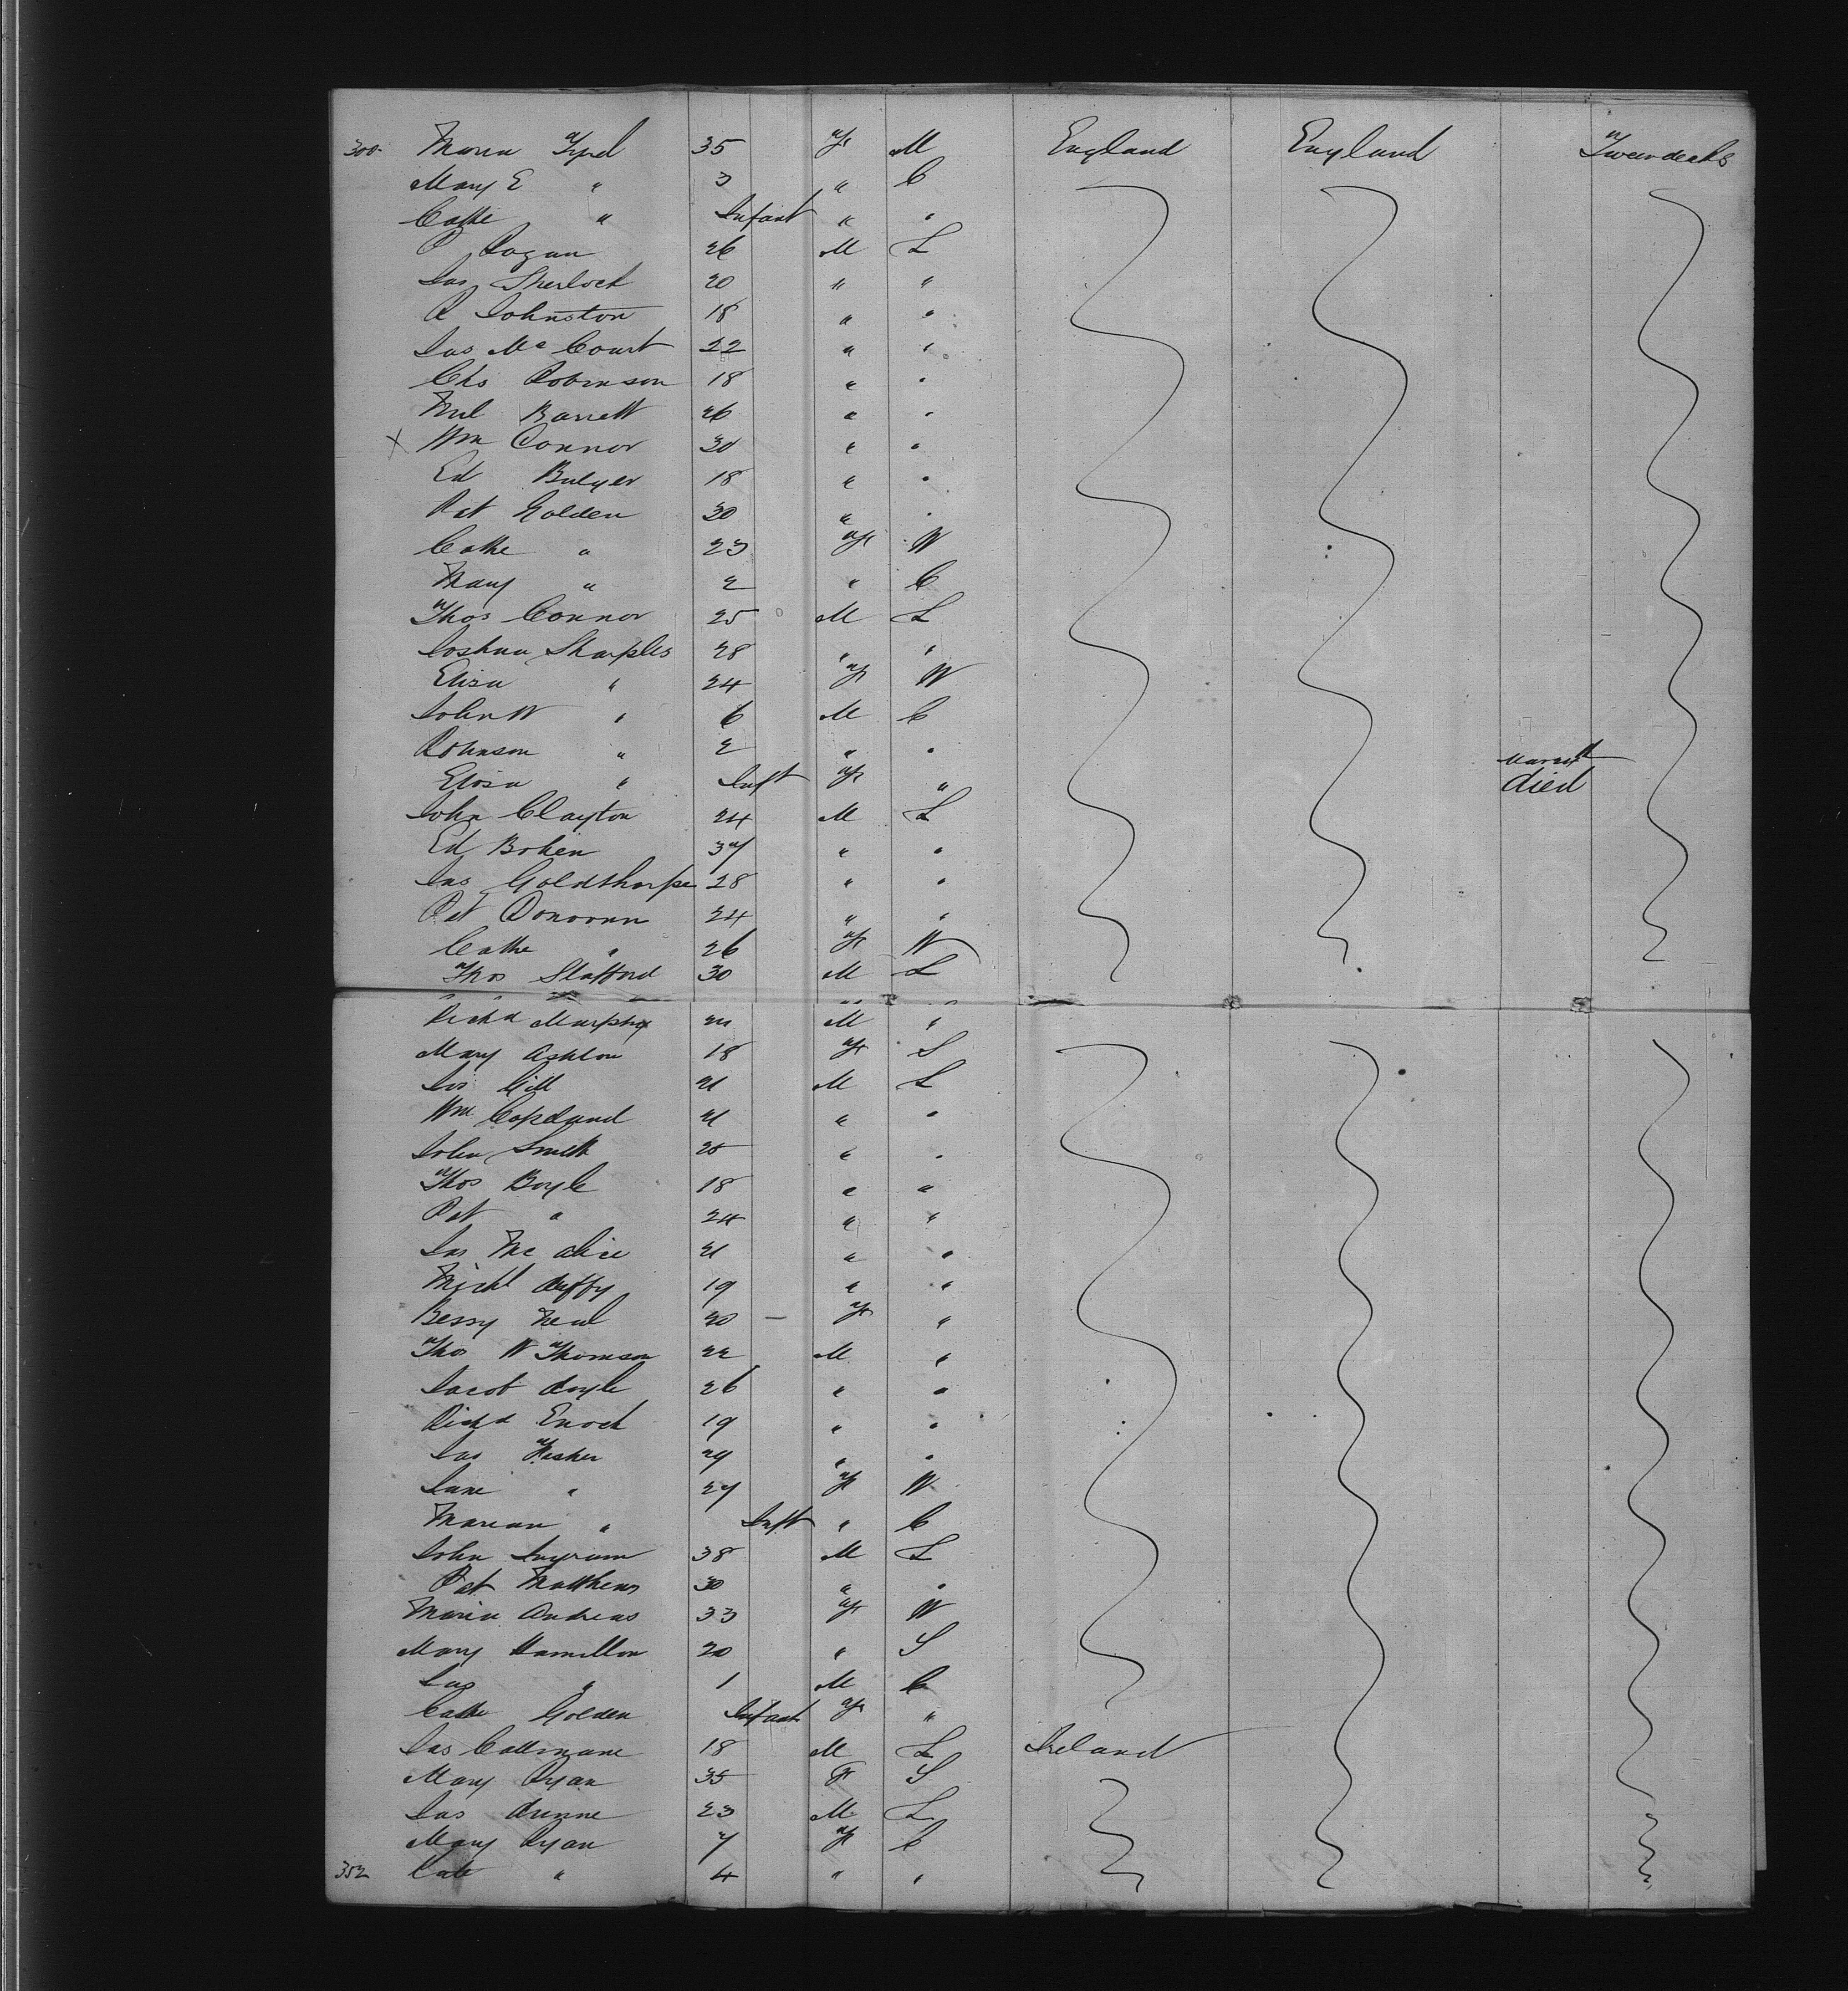 300 Maria 35 F M England England Tweendecks
Mary E " 3 " C
Cathe " Infant " "
P 26 M L
Jas Sherlock 20 " "
R Johnston 18 " "
Jas Mc Court 22 " "
Chs Robinson 18 " "
Barrett 26 " "
X Wm Connor 30 " "
Ed Bulger 18 " "
Pat Golden 30 " "
Cathe " 23 F W
Mary " 2 " C
Thos Connor 25 M L
Joshua Sharples 28 " "
Eliza " 24 F W
John W " 6 M C
Robinson " 2 " "
Eliza " Inft F " died
John Clayton 24 M L
Ed Bohen 37 " "
Jas Goldthorpe 28 " "
Pat Donovan 24 " "
Cathe " 26 F W
Thos Stafford 30 M L
Richd Murphy M "
Mary Ashton 18 F S
Jas Gill 21 M L
Wm Copeland 21 " "
John Smith " "
Thos Boyle 18 " "
Pat " 24 " "
Jas Mc Alice 21 " "
Michl Duffy 19 " "
Bessy Neal 20 – F "
Thos W Thomson 22 M "
Jacob Doyle 26 " "
Richd Enoch 19 " "
Jas " "
Jane " 27 F W
Marian " Inft " C
John Ingram 38 M L
Pat Matthews 30 " "
Maria Andreas 33 F W
Mary Hamilton 20 " S
Jas " 1 M C
Cathe Golden Infant F "
Jas 18 M L Ireland
Mary Ryan 35 F S
Jas Dunne 23 M L
Mary Ryan 7 F C
352 Cate " 4 " "